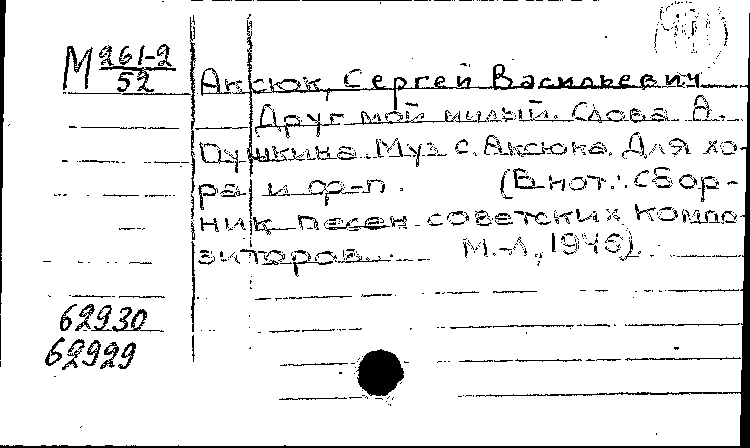 М 261-2
52
Аксюк, Сергей Васильевич
Друг мой милый. Слова А.
Пушкина. Муз. С. Аксюка. Для хо-
ра и ф-п. (В нот.: Сбор-
ник песен советских компо-
зиторов. М.-Л., 1946).
62930
62929